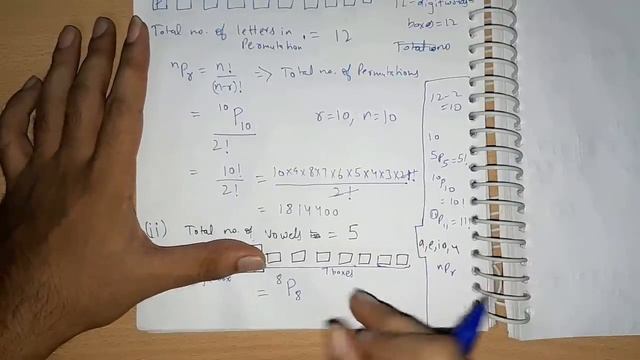 12-digit words
boxes = 12
Total no. of letters in
Permutation = 12
Total no
nPr = n!/(n-r)! => Total no. of Permutations
= 10P10/2! r=10, n=10
= 10!/2! = 10×9×8×7×6×5×4×3×2!/2!
= 1814400
(ii) Total no. of vowels = 5
7 boxes
= 8P8
12-2
=10
10
5P5=5!
10P10
=10!
11P11=11!
a,e,i,o,u
nPr